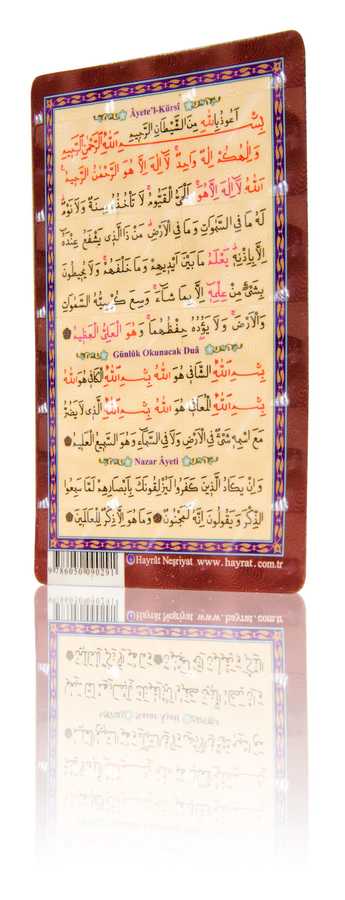 Âyete'l-Kürsî
اَعُوذُ بِاللّٰهِ مِنَ الشَّيْطَانِ الرَّجِيمِ
بِسْمِ اللّٰهِ الرَّحْمٰنِ الرَّحِيمِ
وَاِلٰهُكُمْ اِلٰهٌ وَاحِدٌ لَٓا اِلٰهَ اِلَّا هُوَ الرَّحْمٰنُ الرَّحِيمُ
اَللّٰهُ لَٓا اِلٰهَ اِلَّا هُوَ اَلْحَىُّ الْقَيُّومُ لَا تَاْخُذُهُ سِنَةٌ وَلَا نَوْمٌ
لَهُ مَا فِى السَّمٰوَاتِ وَمَا فِى الْاَرْضِ مَنْ ذَا الَّذِى يَشْفَعُ عِنْدَهُ
اِلَّا بِاِذْنِهِ يَعْلَمُ مَا بَيْنَ اَيْدِيهِمْ وَمَا خَلْفَهُمْ وَلَا يُحِيطُونَ
بِشَىْءٍ مِنْ عِلْمِهِ اِلَّا بِمَا شَٓاءَ وَسِعَ كُرْسِيُّهُ السَّمٰوَاتِ
وَالْاَرْضَ وَلَا يَؤُدُهُ حِفْظُهُمَا وَهُوَ الْعَلِىُّ الْعَظِيمُ
Günlük Okunacak Duâ
بِسْمِ اللّٰهِ الشَّافِى هُوَ اللّٰهُ بِسْمِ اللّٰهِ الْكَافِى هُوَ اللّٰهُ
بِسْمِ اللّٰهِ الْمُعَافِى هُوَ اللّٰهُ بِسْمِ اللّٰهِ الَّذِى لَا يَضُرُّ
مَعَ اسْمِهِ شَىْءٌ فِى الْاَرْضِ وَلَا فِى السَّمَٓاءِ وَهُوَ السَّمِيعُ الْعَلِيمُ
Nazar Âyeti
وَاِنْ يَكَادُ الَّذِينَ كَفَرُوا لَيُزْلِقُونَكَ بِاَبْصَارِهِمْ لَمَّا سَمِعُوا
الذِّكْرَ وَيَقُولُونَ اِنَّهُ لَمَجْنُونٌ وَمَا هُوَ اِلَّا ذِكْرٌ لِلْعَالَمِينَ
Hayrât Neşriyat www.hayrat.com.tr
9786050090291